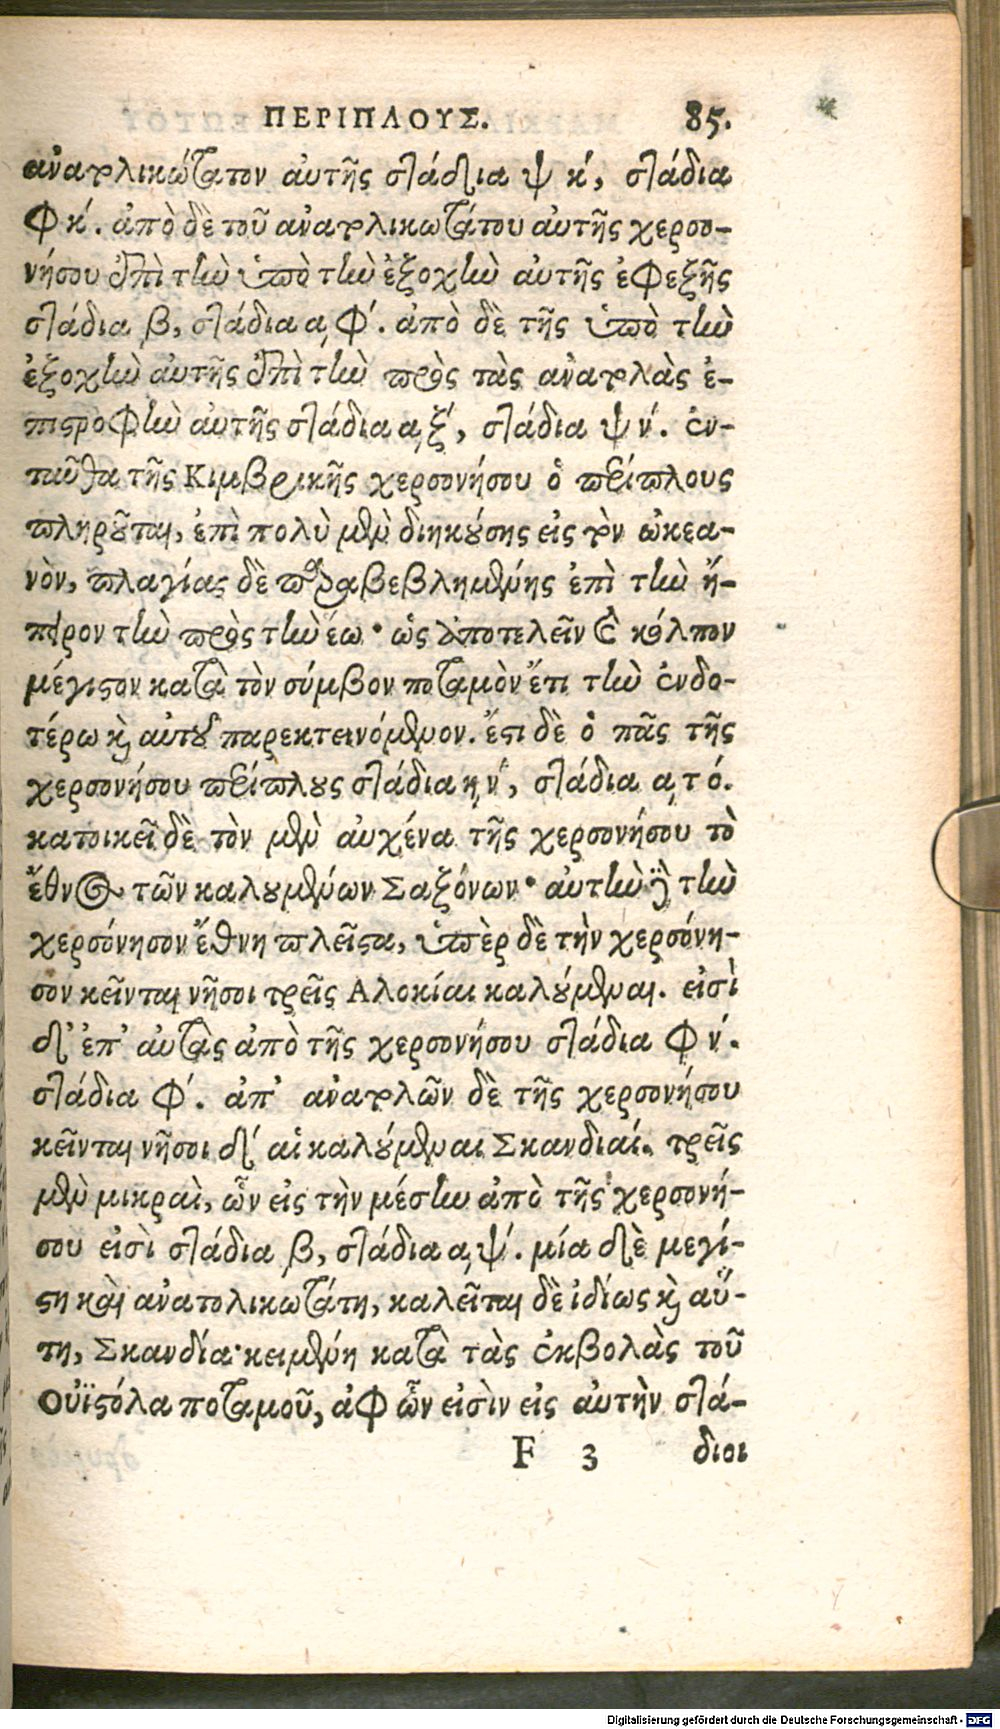 ΠΕΡΙΠΛΟΥΣ. 85.
ἀνατολικώτατον αὐτῆς στάδια ψ κ́, στάδια
φ κ́. ἀπὸ δὲ τοῦ ἀνατολικωτάτου αὐτῆς χερσο-
νήσου ἐπὶ τὴν ὑπὸ τὴν ἐξοχὴν αὐτῆς ἐφεξῆς
στάδια ͵β, στάδια ͵α φ́. ἀπὸ δὲ τῆς ὑπὸ τὴν
ἐξοχὴν αὐτῆς ἐπὶ τὴν πρὸς τὰς ἀνατολὰς ἐ-
πιστροφὴν αὐτῆς στάδια ͵α ξ́, στάδια ψ ν́. ἐν-
ταῦθα τῆς Κιμβρικῆς χερσονήσου ὁ περίπλους
πληροῦται, ἐπὶ πολὺ μὲν διηκούσης εἰς τὸν ὠκεα-
νὸν, πλαγίας δὲ παραβεβλημένης ἐπὶ τὴν ἤ-
πειρον τὴν πρὸς τὴν ἕω· ὡς ἀποτελεῖν καὶ κόλπον
μέγιστον κατὰ τὸν σύμβον ποταμὸν ἔτι τὴν ἐνδο-
τέρω καὶ αὐτοῦ παρεκτεινόμενον. ἔστι δὲ ὁ πᾶς τῆς
χερσονήσου περίπλους στάδια ͵η ν́, στάδια ͵α τ ό.
κατοικεῖ δὲ τὸν μὲν αὐχένα τῆς χερσονήσου τὸ
ἔθνος τῶν καλουμένων Σαξόνων· αὐτὴν δὲ τὴν
χερσόνησον ἔθνη πλεῖστα, ὑπὲρ δὲ τὴν χερσόνη-
σον κεῖνται νῆσοι τρεῖς Αλοκίαι καλούμεναι. εἰσὶ
δ' ἐπ' αὐτὰς ἀπὸ τῆς χερσονήσου στάδια φ ν́.
στάδια φ́. ἀπ' ἀνατολῶν δὲ τῆς χερσονήσου
κεῖνται νῆσοι δ́ αἱ καλούμεναι Σκανδιαί. τρεῖς
μὲν μικραὶ, ὧν εἰς τὴν μέσην ἀπὸ τῆς χερσονή-
σου εἰσὶ στάδια ͵β, στάδια ͵α ψ́. μία δὲ μεγί-
στη καὶ ἀνατολικωτάτη, καλεῖται δὲ ἰδίως καὶ αὕ-
τη, Σκανδία· κειμένη κατὰ τὰς ἐκβολὰς τοῦ
Οὐϊστόλα ποταμοῦ, ἀφ ὧν εἰσὶν εἰς αὐτὴν στά-
F 3 διοι
Digitalisierung gefördert durch die Deutsche Forschungsgemeinschaft - DFG